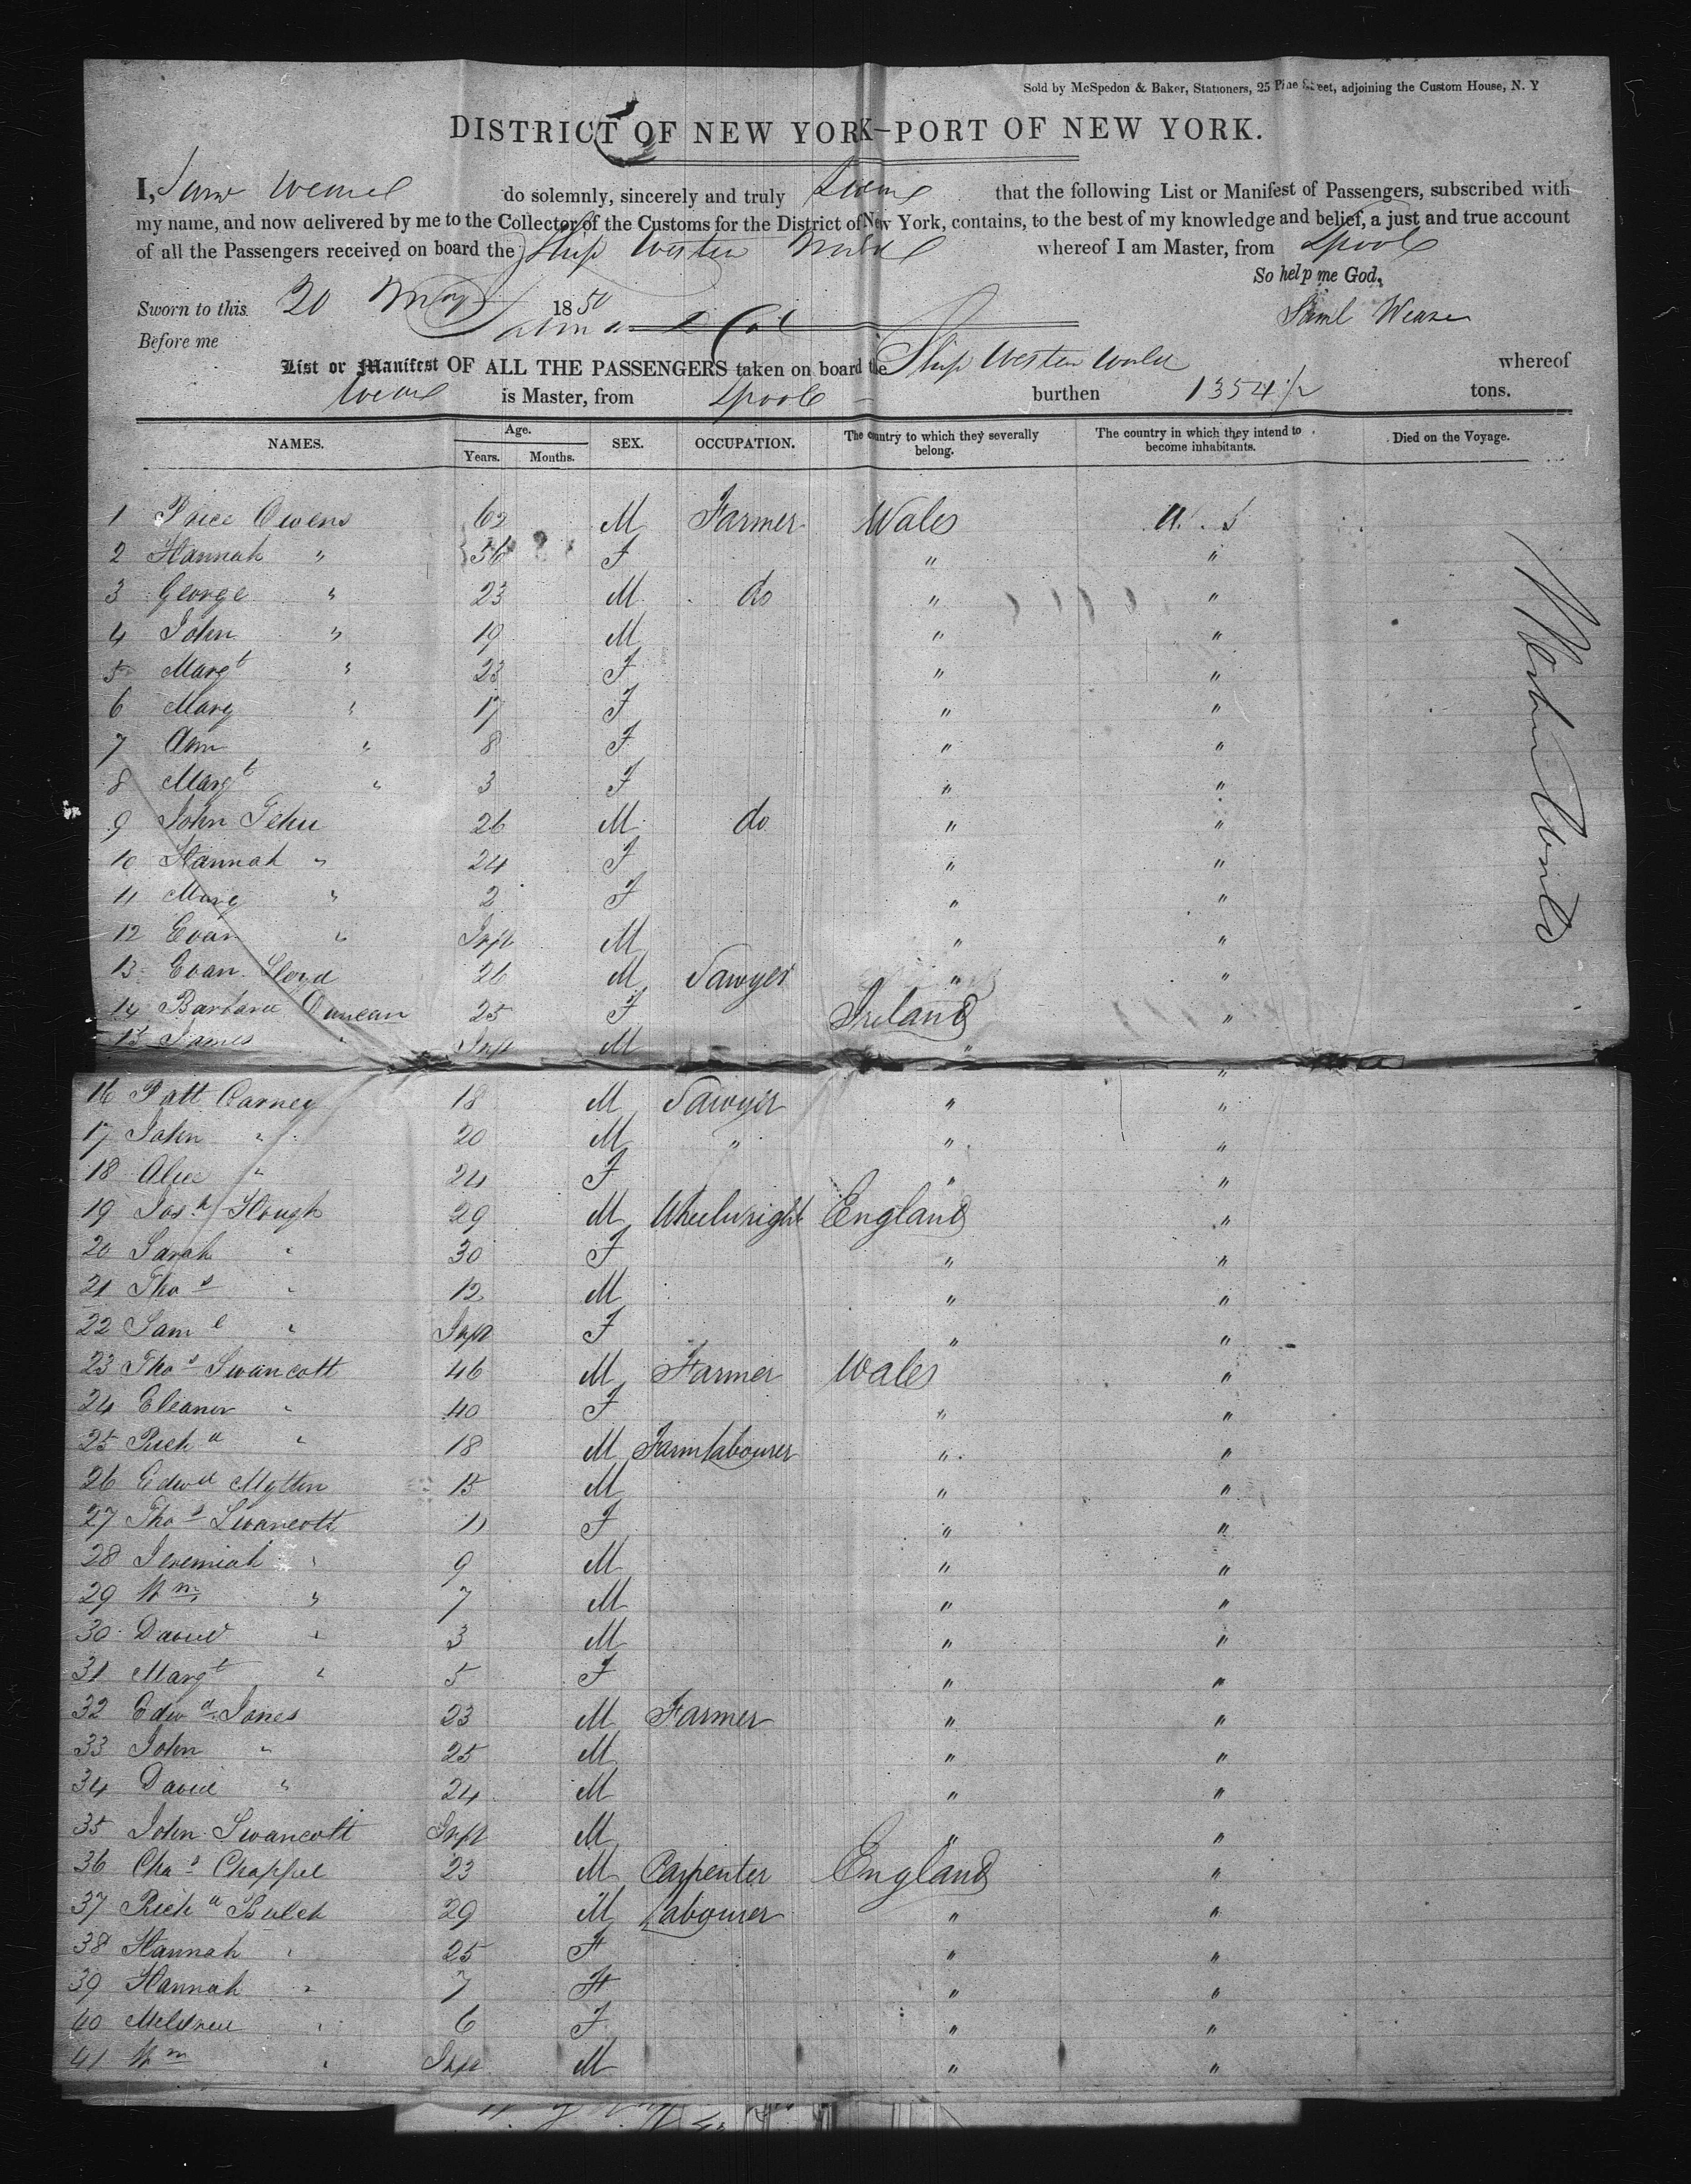 Sold by McSpedon & Baker, Stationers, 25 Pine Street, adjoining the Custom House, N. Y
DISTRICT OF NEW YORK—PORT OF NEW YORK.
I, do solemnly, sincerely and truly Swear that the following List or Manifest of Passengers, subscribed with
my name, and now delivered by me to the Collector of the Customs for the District of New York, contains, to the best of my knowledge and belief, a just and true account
of all the Passengers received on board the Ship Western World whereof I am Master, from Lpool
So help me God,
Sworn to this 20 May 1850 Saml Weare
Before me
List or Manifest OF ALL THE PASSENGERS taken on board the Ship Western World whereof
Weare is Master, from Lpool burthen 1354 1/2 tons.
NAMES. Age. Years. Months. SEX. OCCUPATION. The country to which they severally belong. The country in which they intend to become inhabitants. Died on the Voyage.
1 Price Owens 62 M Farmer Wales U. S
2 Hannah " 56 F " "
3 George " 23 M do " "
4 John " 19 M " "
5 Margt " 23 F " "
6 Mary " 17 F " "
7 Ann " 8 F " "
8 Margt " 3 F " "
9 John Jehu 26 M do " "
10 Hannah " 24 F " "
11 Mary " 2 F " "
12 Evan " Inft M " "
13 Evan Lloyd 26 M Sawyer " "
14 Barbara Duncan 25 F Ireland "
15 James " Inft M " "
16 Patt Carney 18 M Sawyer " "
17 John " 20 M " " "
18 Alice " 24 F " "
19 Josh Hough 29 M Wheelwright England "
20 Sarah " 30 F " "
21 Thos " 12 M " "
22 Saml " Inft F " "
23 Thos Swancott 46 M Farmer Wales "
24 Eleanor " 40 F " "
25 Richd " 18 M Farm labourer " "
26 Edwd Mytton 15 M " "
27 Thos Swancott 11 F " "
28 Jeremiah " 9 M " "
29 Wm " 7 M " "
30 David " 3 M " "
31 Margt " 5 F " "
32 Edwd Jones 23 M Farmer " "
33 John " 25 M " "
34 David " 24 M " "
35 John Swancott Inft M " "
36 Chas Chappel 23 M Carpenter England "
37 Richd 29 M Labourer " "
38 Hannah " 25 F " "
39 Hannah " 7 F " "
40 " 6 F " "
41 Wm " Inft M " "
Western World